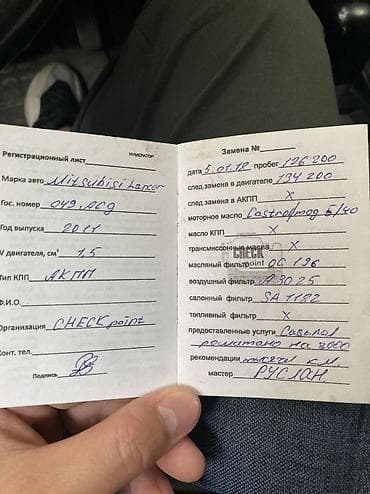 Регистрационный лист
НУМЕРАТОР
Марка авто Mitsubisi Lancer
Гос. номер 049 ACG
Год выпуска 2011
V двигателя, см³ 1,5
Тип КПП АКПП
Ф.И.О.
Организация CHECK point
Конт. тел.
Подпись
Замена №
дата 5.01.18 пробег 126200
след.замена в двигателе 134200
след.замена в АКПП X
моторное масло Castrol mag 5/40
масло КПП X
трансмиссионные масла X
CHECK
point
масляный фильтр OC 196
воздушный фильтр A 3025
салонный фильтр SA 1182
топливный фильтр X
предоставленные услуги
на 8000
рекомендации тысяч к.м.
мастер РУСЛАН.